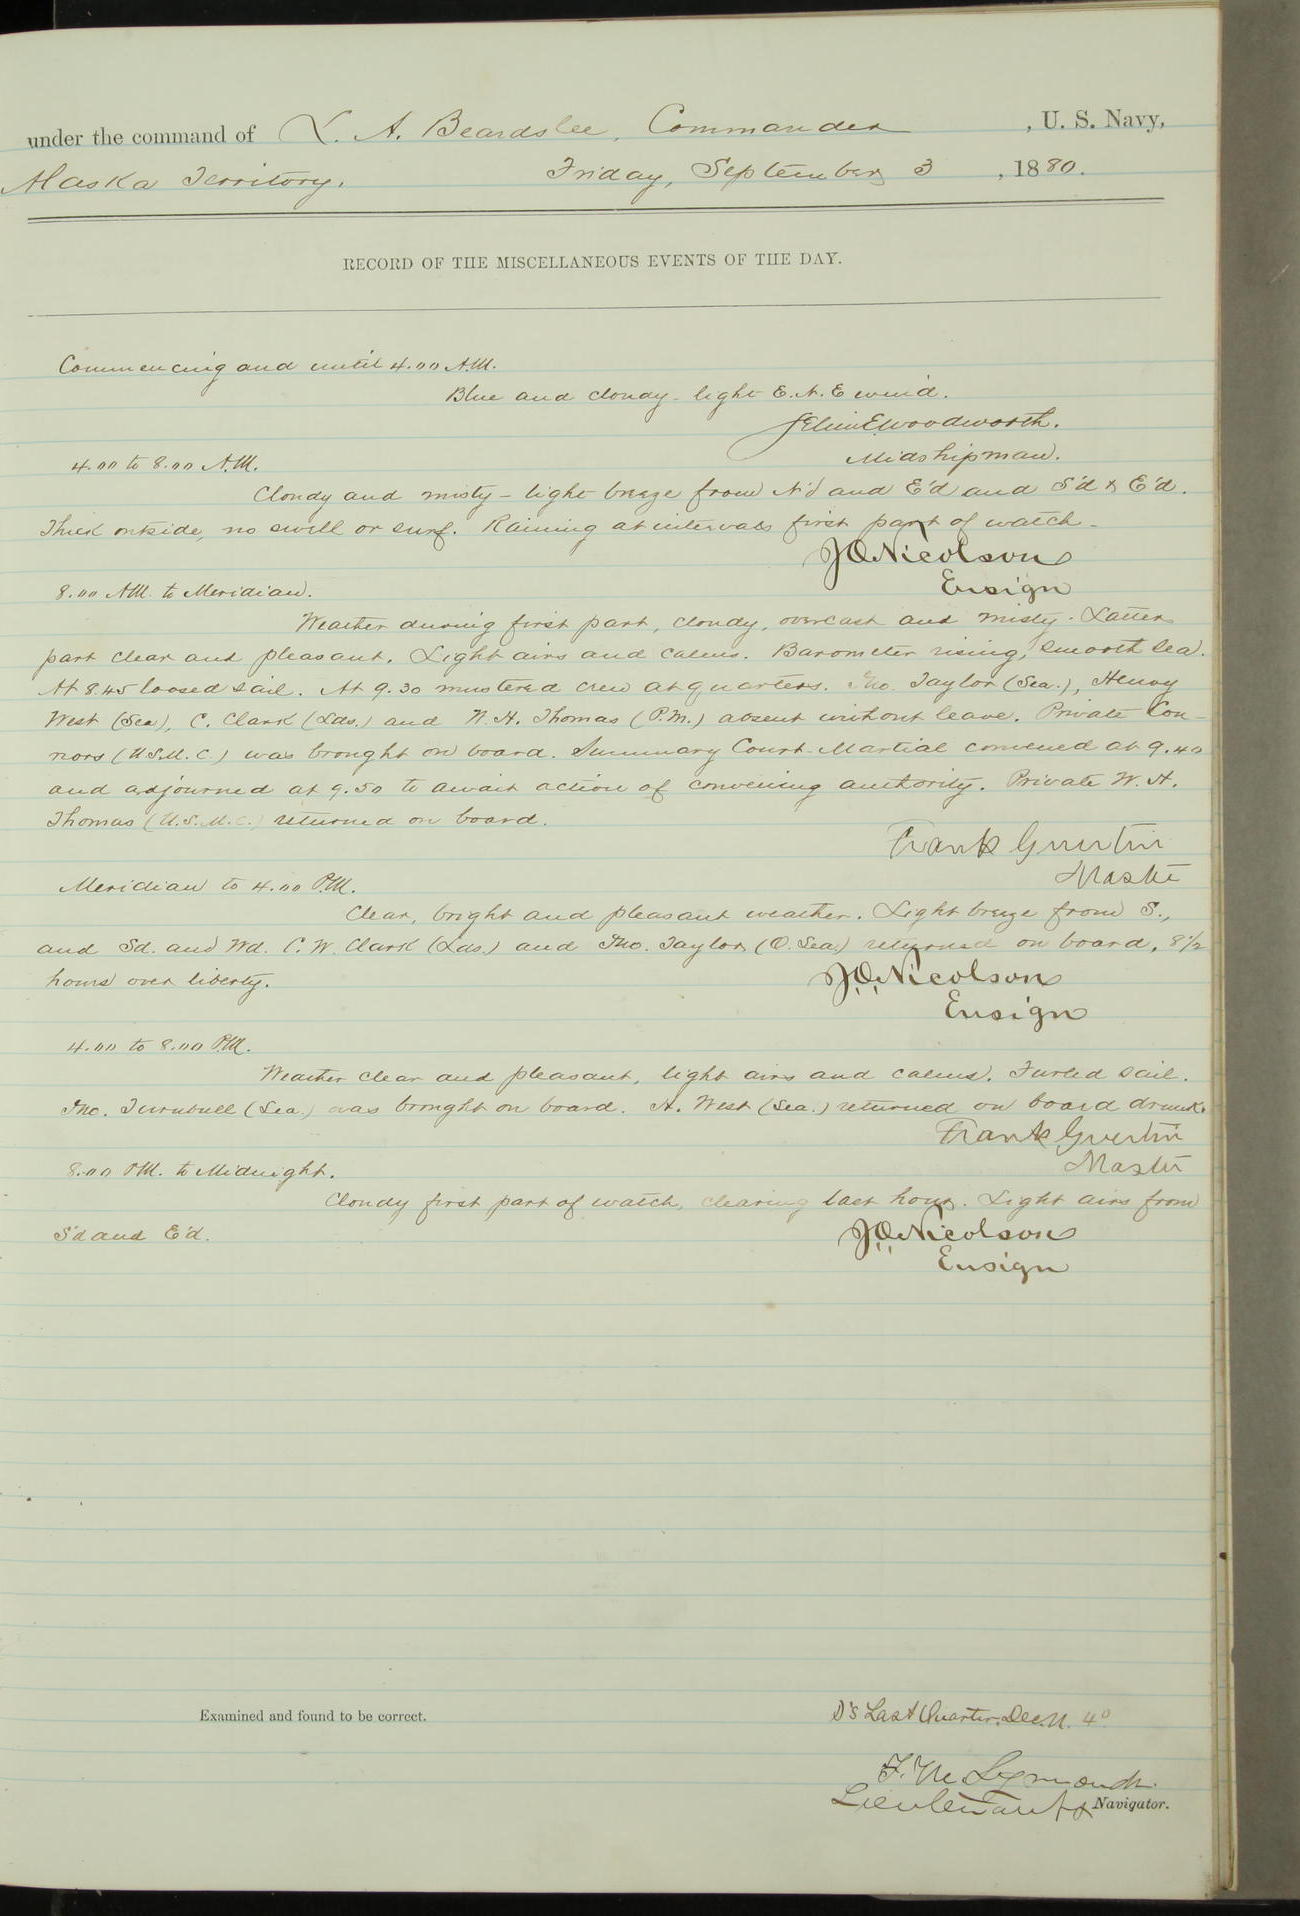 under the command of L. A. Beardslee, Commander , U. S. Navy,
Alaska Territory. Friday, September 3 , 1880.
RECORD OF THE MISCELLANEOUS EVENTS OF THE DAY.
Commencing and until 4.00 A.M.
Blue and cloudy - light E.N.E wind.
Selim E Woodworth.
Midshipman.
4.00 to 8.00 A.M.
Cloudy and misty - light breeze from N'd and E'd and S'd & E'd.
Thick outside, no swell or surf. Raining at intervals first part of watch -
JO Nicolson
Ensign
8.00 AM. to Meridian.
Weather during first part, cloudy, overcast and misty. Latter
part clear and pleasant. Light airs and calms. Barometer rising, smooth sea.
At 8.45 loosed sail. At 9.30 mustered crew at quarters. Jno. Taylor (Sea.), Henry
West (Sea), C. Clark (Lds.) and W. H. Thomas (P.M.) absent without leave. Private Con-
nors (U.S.M.C.) was brought on board. Summary Court-Martial convened at 9.40
and adjourned at 9.50 to await action of convening authority. Private W. H.
Thomas (U.S.M.C.) returned on board.
Frank Guertin
Master
Meridian to 4.00 P.M.
Clear, bright and pleasant weather. Light breeze from S.,
and Sd. and Wd. C. W. Clark (Lds.) and Jno. Taylor (O. Sea.) returned on board, 8 1/2
hours over liberty.
J.O. Nicolson
Ensign
4.00 to 8.00 P.M.
Weather clear and pleasant, light airs and calms. Furled sail.
Jno. Turnbull (Sea.) was brought on board. H. West (Sea.) returned on board drunk.
Frank Guertin
Master
8.00 P.M. to Midnight.
Cloudy first part of watch, clearing last hour. Light airs from
S'd and E'd.
J.O. Nicolson
Ensign
Examined and found to be correct.
D's Last Quarter. Dec. N. 4°
F. M. Symonds
Lieutenant & Navigator.